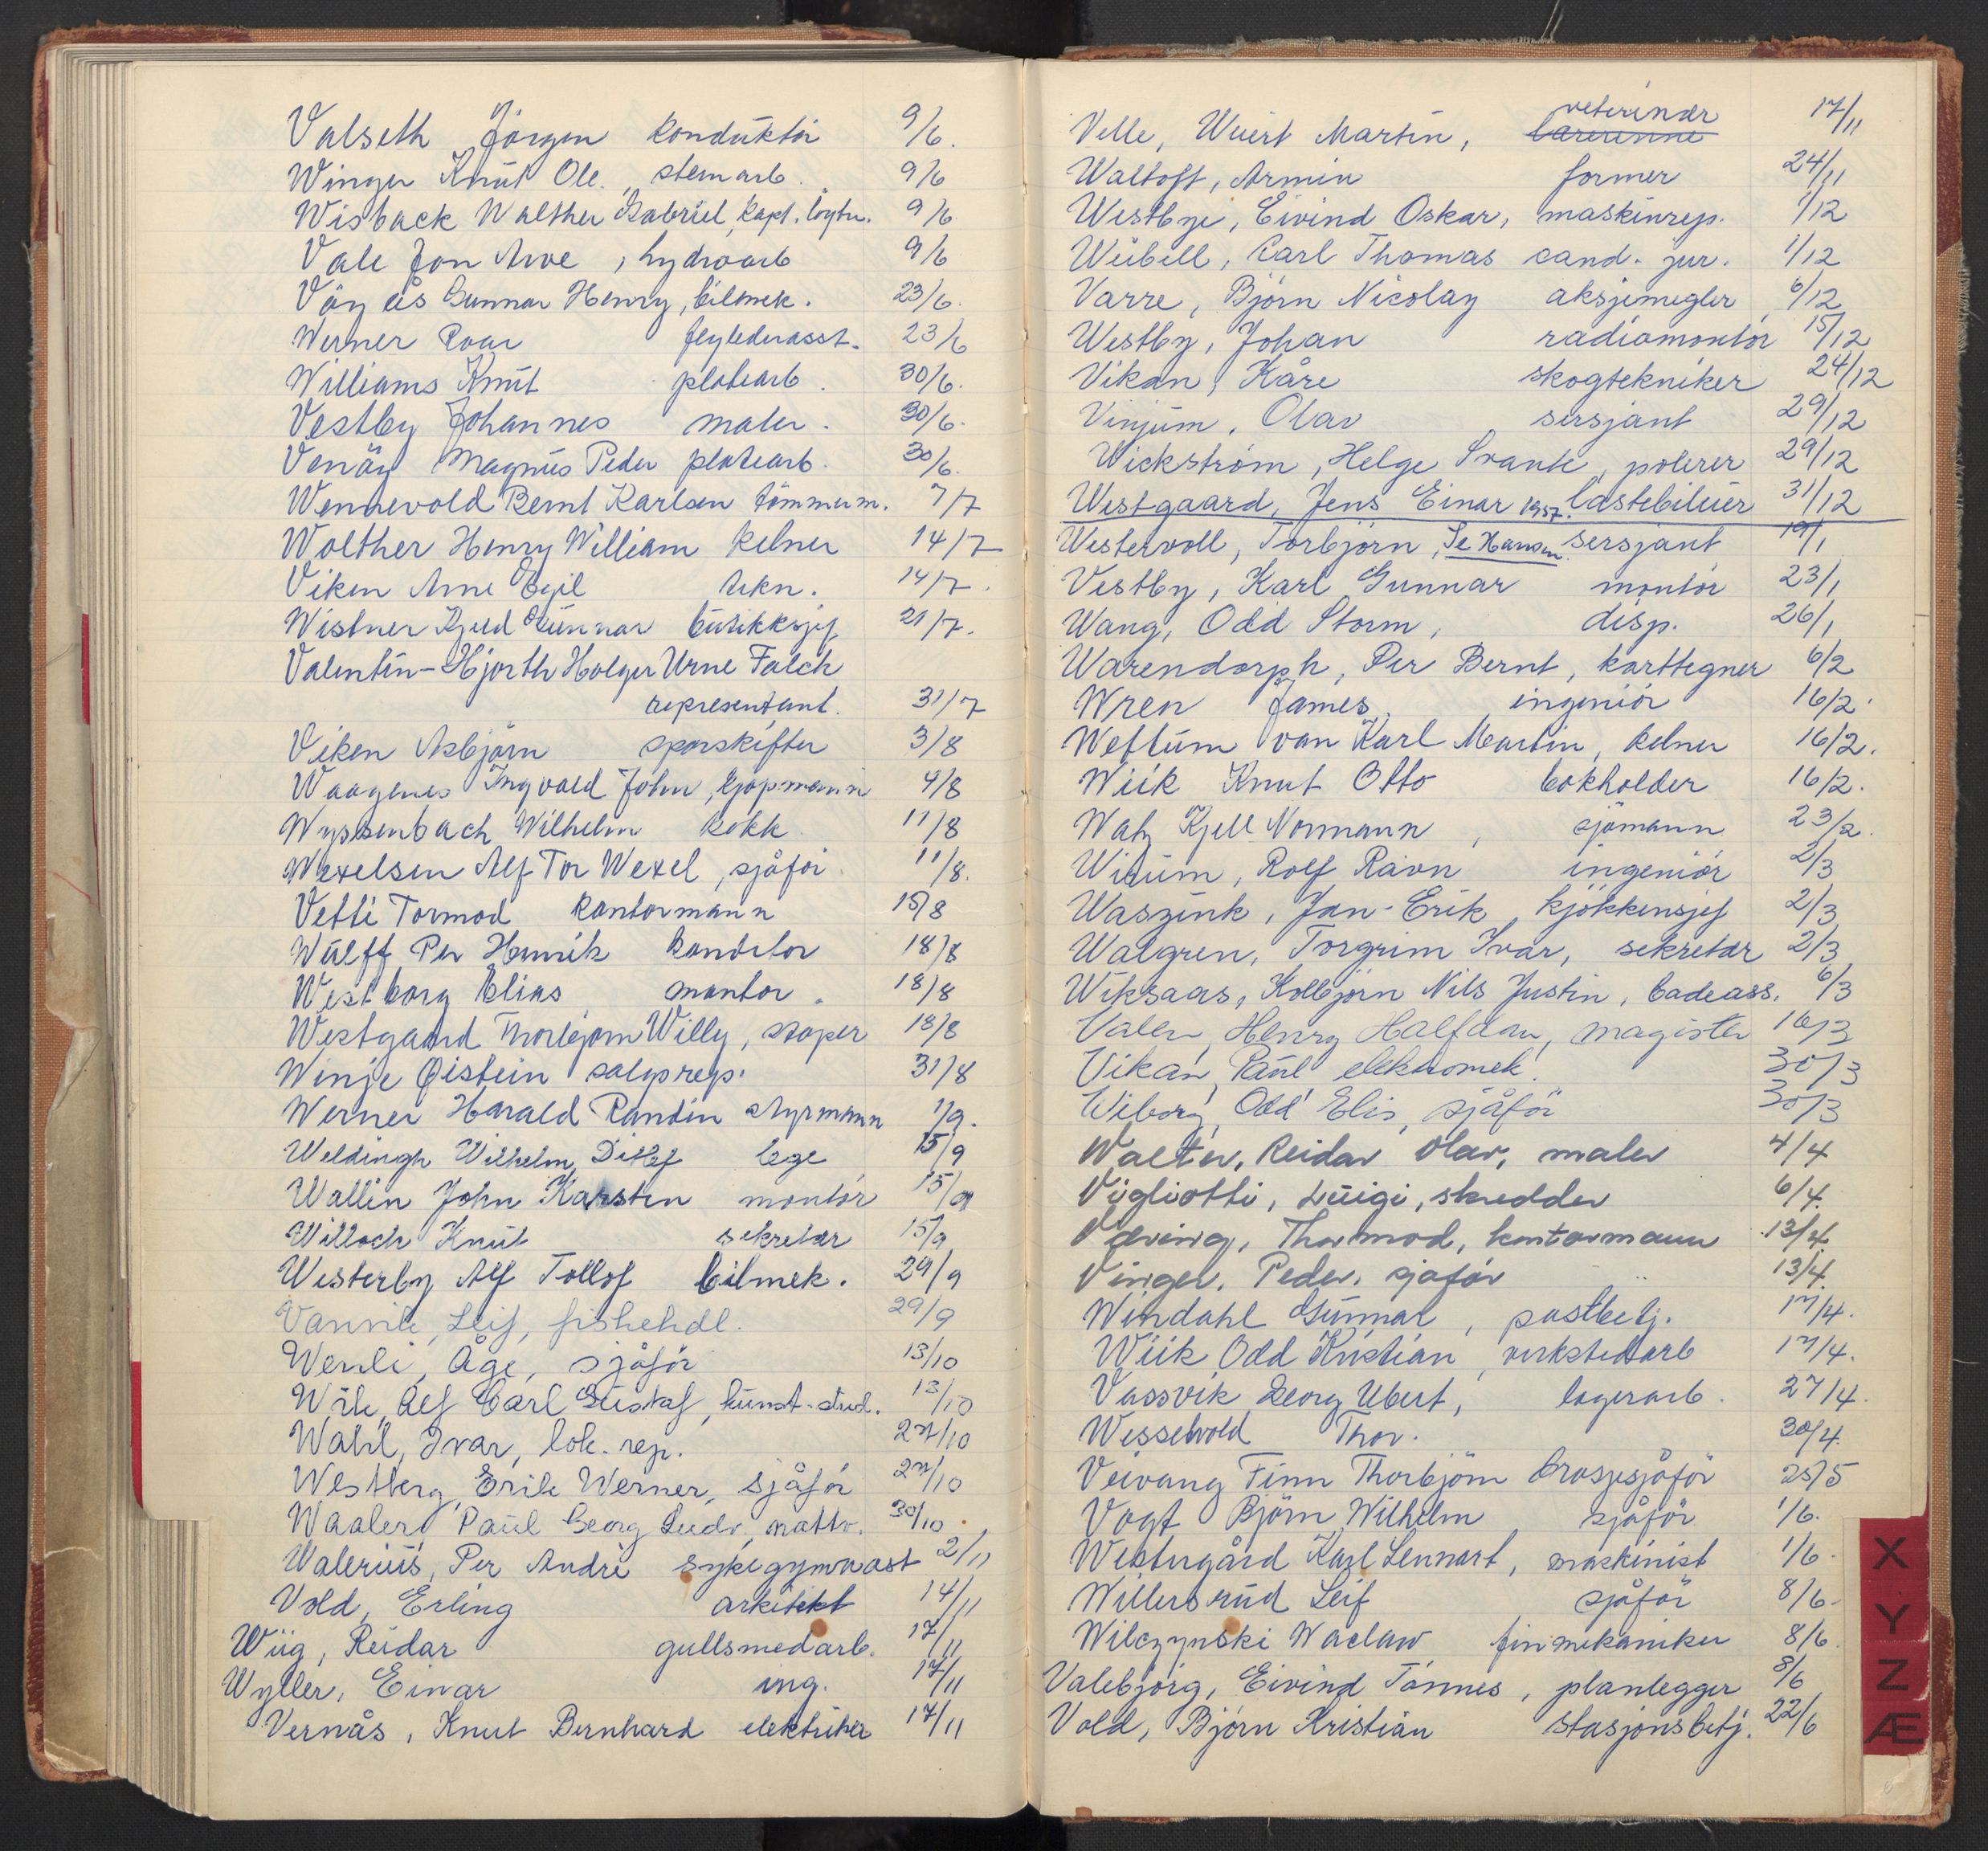 Valseth Jörgen konduktör 9/6.
Winger Knut Ole, stenarb. 9/6
Wisback Walther Gabriel, kapt. 9/6
Vale Jon Arve, hydroarb 9/6
Gunnar Henry, bilmek. 23/6.
Werner Roar flylederasst. 23/6
Williams Knut platearb. 30/6.
Vestby Johannes maler. 30/6.
Venöy Magnus Peder platearb. 30/6.
Wennevold Bernt Karlsen tömmerm. 7/7
Wolther Henry William kelner 14/7
Viken Arne Egil tekn. 14/7.
Wistner Kjell Gunnar butikksjef 21/7.
Valentin-Hjorth Holger Urne Falck
representant. 31/7
Viken Asbjörn sporskifter 3/8
Waagenes Ingvald John, kjöpmann 4/8
Wyssenbach Wilhelm kokk 11/8
Wexelsen Alf Tor Wexel, sjåför. 11/8.
Vetti Tormod kontormann 15/8
Wulff Per Henrik konditor 18/8
Westborg Elias montör. 18/8
Westgaard Thorbjörn Willy, stöper 18/8
Winje Øistein salgsrep. 31/8
Werner Harald Randin styrmann 1/9.
Weldingh Wilhelm Ditlef lege 15/9
Wallin John Karsten montör 15/9
Willoch Knut sekretær 15/9
Westerby Alf Tollof bilmek. 29/9
Vannvik, Leif, fiskehdl. 29/9
Wenli, Åge, sjåför 13/10
Alf Carl Gustaf, kunst-stud. 13/10
Wahl, Ivar, lok. rep. 27/10
Westberg, Erik Werner, sjåför 27/10
Waaler, Paul Georg Ludv, nattv. 30/10.
Walerius, Per André sykegymnast 2/11
Vold, Erling arkitekt 14/11
Wiig, Reidar gullsmedarb. 17/11
Wyller, Einar ing. 17/11
Vernås, Knut Bernhard elektriker 17/11
veterinær 17/11
Velle, Wiert Martin,
Waltoft, Armin former 24/11
Westbye, Eivind Oskar, maskinrep. 1/12
Wübell, Carl Thomas cand. jur. 1/12
Varre, Björn Nicolay aksjemegler 6/12
Westby, Johan radiomontör 15/12
Vikan, Kåre skogtekniker 24/12
Vinjum, Olav sersjant 29/12
Wickström, Helge Svante, polerer 29/12
Westgaard, Jens Einar 1957. lastebileier 31/12
Westervoll, Torbjörn, Se Hansen. sersjant 19/1
Vestby, Karl Gunnar montör 23/1
Wang, Odd Storm, disp. 26/1
Warendorph, Per Bernt, karttegner 6/2
Wren James, ingeniör 16/2.
Weftum van Karl Martin, kelner 16/2.
Wiik Knut Otto bokholder 16/2.
Watz Kjell Normann, sjömann 23/2.
Wium, Rolf Ravn ingeniör 2/3
Waszink, Jan-Erik, kjökkensjef 2/3
Walgren, Torgrim Ivar, sekretær 2/3
Wiksaas, Kolbjörn Nils Justin, badeass. 6/3
Valen, Henry Halfdan, magister 16/3
Vikan, Paul elektromek. 30/3
Wiborg, Odd Elis, sjåför 30/3
Walter, Reidar Olav, maler 4/4
Vigliotti, Luigi, skredder 6/4.
Vævring, Thormod, kontormann 13/4
Vinger, Peder, sjåför 13/4.
Windahl Gunnar, postbetj. 17/4.
Wiik, Odd Kristian, verkstedarb 17/4.
Vassvik Georg Ubert, lagerarb. 27/4.
Wesselvold Thor. 30/4.
Veivang Finn Thorbjörn drosjesjåför 25/5
Vogt Björn Wilhelm sjåför 1/6.
Westergård Karl Lennart, maskinist 1/6.
Willersrud Leif sjåför 8/6.
Wilczynski Waclaw finmekaniker 8/6.
Valebjörg, Eivind Tönnes, planlegger 8/6
Vold, Björn Kristian stasjonsbetj. 22/6
X
Y
Z
Æ